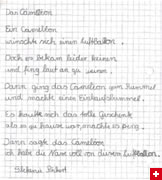 Das Camelleon
Ein Camelleon
wünschte sich einen Luftballon.
Doch er bekam leider keinen
und fing laut an zu weinen.
Dann ging das Camelleon zum Rummel
und machte einen Einkaufsbummel.
Es kaufte sich das tolle Geschenk
als es zu hause war, machte es peng.
Dann sagte das Camelleon
ich habe die Nase voll von diesem Luftballon.
Stefanie